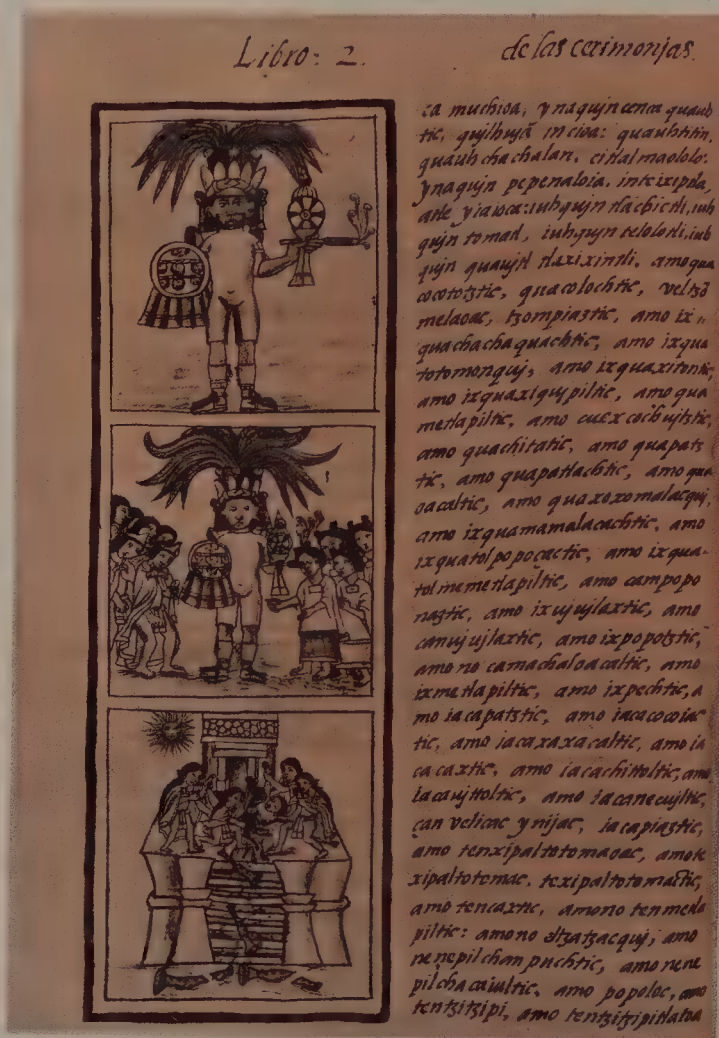 Libro: 2.
de las cerimonjas.
ca muchioa, ynaqujn cenca quauh
tic, qujlhujā in cioa: quauhtitin,
quauhchachalan, citlalmaololo:
ynaqujn pepenaloia, inteixiptla,
atle yiaioca: iuhqujn tlachictli, iuh
qujn tomatl, iuhqujn telolotli, iuh
qujn quaujtl tlaxixintli, amo qua
cocototztic, quacolochtic, vel tzō
melaoac, tzompiaztic, amo ix
quachachaquachtic, amo ixqua
totomonquj, amo ixquaxitontic,
amo ixquaxiqujpiltic, amo qua
metlapiltic, amo cuexcochujtztic,
amo quachitatic, amo quapatz
tic, amo quapatlachtic, amo qua
oacaltic, amo quaxoxomalacquj,
amo ixquamamalacachtic, amo
ixquatolpopoçactic, amo ixqua-
tolmemetlapiltic, amo campopo
naztic, amo ixujujlaxtic, amo
canujujlaxtic, amo ixpopotztic,
amo no camachaloacaltic, amo
ixmetlapiltic, amo ixpechtic, a
mo iacapatztic, amo iacacocoiac
tic, amo iacaxaxacaltic, amo ia
cacaxtic, amo iacachittoltic, amo
iacaujttoltic, amo iacanecujltic,
çan velicac ynijac, iacapiaztic,
amo tenxipaltotomaoac, amo te
xipaltotomac, texipaltotomactic,
amo tencaxtic, amono tenmetla
piltic: amono eltzatzacquj, amo
nenepilchanpuchtic, amo nene
pilchacaiultic, amo popoloc, amo
tentzitzipi, amo tentzitzipitlatoa